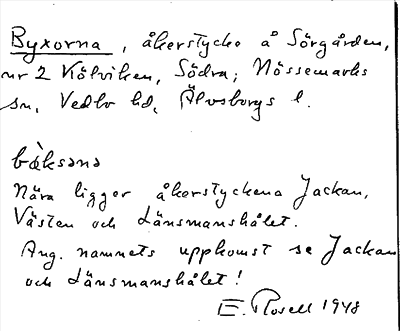 Byxorna, åkerstycke å Sörgården,
nr 2 Kölviken, Södra; Nössemarks
sn, Vedbo hd, Älvsborgs l.
bỳksənə
Nära ligger åkerstyckena Jackan,
Västen och Länsmanshålet.
Ang. namnets uppkomst se Jackan
och Länsmanshålet!
E. Rosell 1948